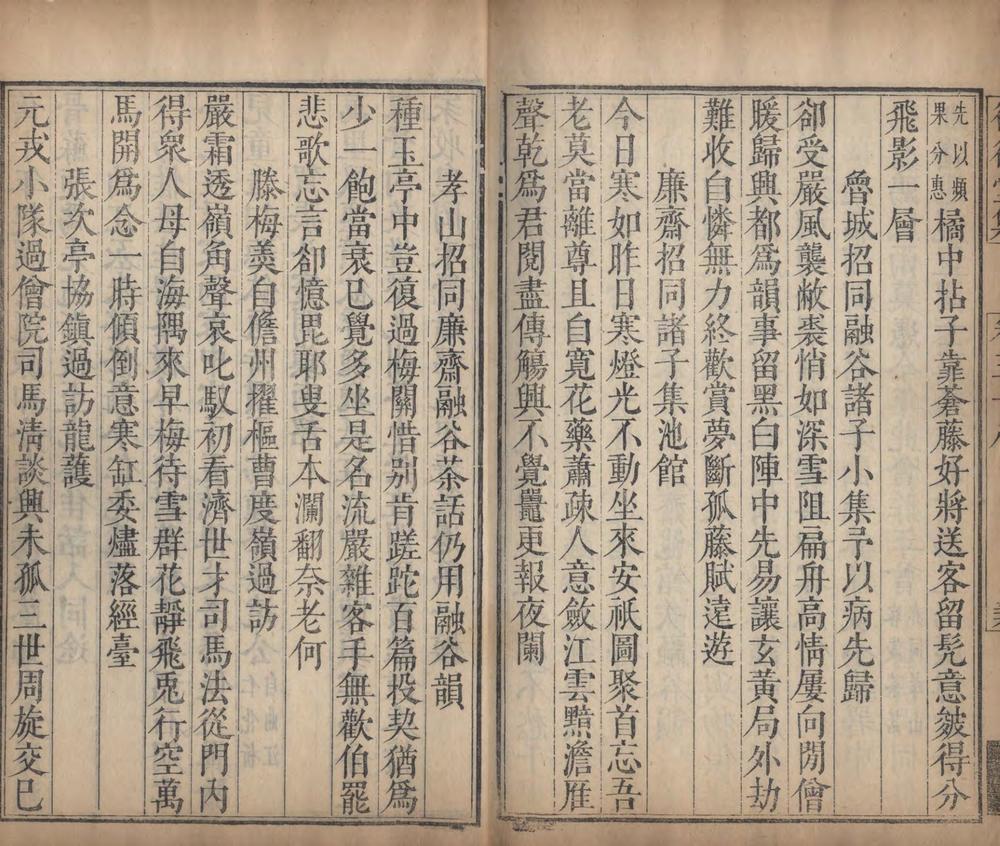 先以頻
果分惠
橘中拈子靠蒼藤好將送客留髡意皴得分
飛影一層
魯城招同融谷諸子小集予以病先歸
卻受嚴風襲敝裘悄如深雪阻扁舟高情屢向閒僧
暖歸興都為韻事留黑白陣中先易讓玄黃局外劫
難收自憐無力終歡賞夢斷孤藤賦遠遊
廉齋招同諸子集池館
今日寒如昨日寒燈光不動坐來安祇圖聚首忘吾
老莫當離尊且自寬花藥蕭疎人意斂江雲黯澹雁
聲乾為君閱盡傳觴興不覺鼉更報夜闌
孝山招同廉齋融谷茶話仍用融谷韻
種玉亭中豈復過梅關惜別肯蹉跎百篇投契猶為
少一飽當衰已覺多坐是名流嚴雜客手無歡伯罷
悲歌忘言卻憶毘耶叟舌本瀾翻奈老何
滕梅羹自儋州擢樞曹度嶺過訪
嚴霜透嶺角聲哀叱馭初看濟世才司馬法從門內
得衆人母自海隅來早梅待雪群花靜飛兎行空萬
馬開為念一時傾倒意寒缸委燼落經臺
張次亭協鎮過訪龍護
元戎小隊過僧院司馬淸談興未孤三世周旋交已